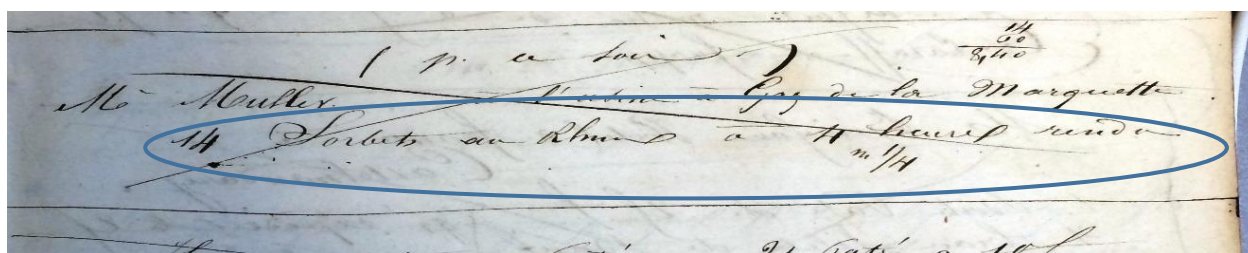 14
60
8,40
( p. ce soir )
Mr Muller à l'usine à Gaz de la Marquette.
14 Sorbets au Rhum à 4 heures rendu
m 1/4